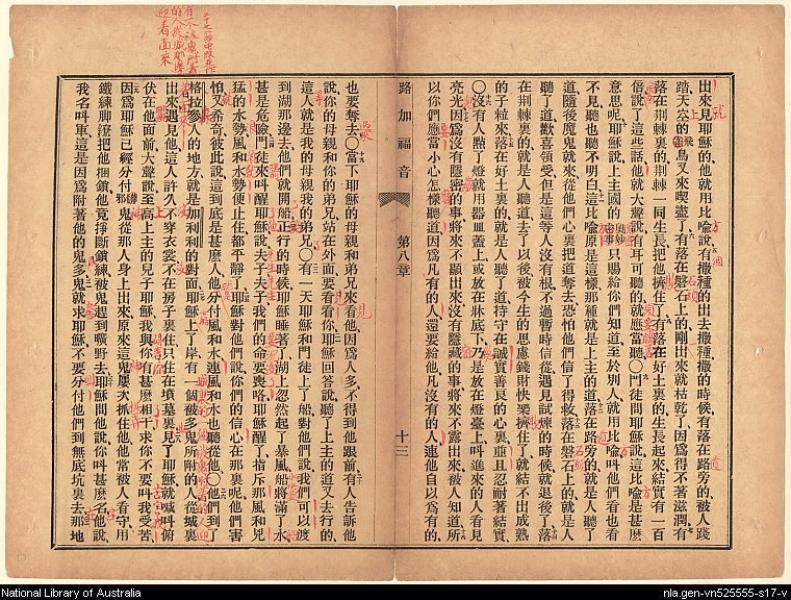 出來見耶穌的他就用比喻說有撒種的出去撒種撒的時候有落在路旁的被人踐
踏天空的飛鳥又來喫盡了有落在磐石上的剛出來就枯乾了因爲得不著滋潤有
落在荆棘裏的荆棘一同生長把他擠住了有落在好土裏的生長起來結實有一百
倍說了這些話他就大聲說有耳可聽的就應當聽〇門徒問耶穌說這比喻是甚麼
意思呢耶穌說上主國的奧妙事只賜給你們知道至於別人就用比喻叫他們看也看
不見聽也聽不明白這比喻原是這樣那種就是上主的道落在路旁的就是人聽了
道隨後魔鬼就來從他們心裏把道奪去恐怕他們信了得救落在磐石上的就是人
聽了道歡喜領受但是這等人沒有根不過暫時信從遇見試煉的時候就退後了落
在荆棘裏的就是人聽道去了以後被今生的思慮錢財快樂擠住了就結不出成熟
的子粒來落在好土裏的就是人聽了道持守在誠實善良的心裏並且忍耐著結實
〇沒有人點了燈就用器皿蓋上或放在牀底下乃是放在燈臺上叫進來的人看見
亮光因爲沒有隱密的事將來不顯出來沒有隱藏的事將來不露出來被人知道所
以你們應當小心怎樣聽道因爲凡有的人還要給他凡沒有的人連他自以爲有的
路加福音
第八章
十三
也要奪去〇當下耶穌的母親和弟兄來看他因爲人多不得到他跟前有人告訴他
說你的母親和你的弟兄站在外面要看你耶穌回答說聽了上主的道又去行的
這人就是我的母親我的弟兄〇有一天耶穌和門徒上了船對他們說我們可以渡
到湖那邊去他們就開船正行的時候耶穌睡著了湖上忽然起了暴風船將滿了水
甚是危險門徒來叫醒耶穌說夫子夫子我們的命要喪咯耶穌醒了指斥那風和兇
猛的水勢風和水勢便止住都平靜了耶穌對他們說你們的信心在那裏呢他們害
怕又希奇彼此說這到底是甚麼人他分付風和水連風和水也聽從他〇他們到了
格拉參人的地方就是加利利的對面耶穌上了岸有一個被多鬼所附的人從城裏
出來遇見他這人許久不穿衣裳不在房子裏住只住在墳墓裏見了耶穌就喊叫俯
伏在他面前大聲說至高上主的兒子耶穌我與你有甚麼相干求你不要叫我受苦
因爲耶穌已經分付邪鬼從那人身上出來原來這鬼屢次抓住他他常被人看守用
鐵練脚鐐把他捆鎖他竟掙斷鎖練被鬼趕到曠野去耶穌問他說你叫甚麼名他說
我名叫軍這是因爲附著他的鬼多鬼就求耶穌不要分付他們到無底坑裏去那地
National Library of Australia
nla.gen-vn525555-s17-v